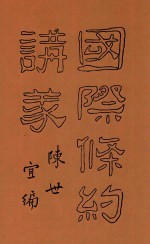 國際條約
講義
陳世宜編